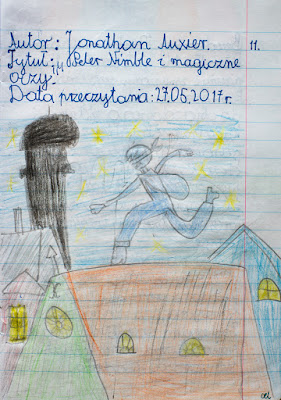 Autor: Jonathan Auxier. 11.
Tytuł: "Peter Nimble i magiczne
oczy".
Data przeczytania: 27.05.2017r.